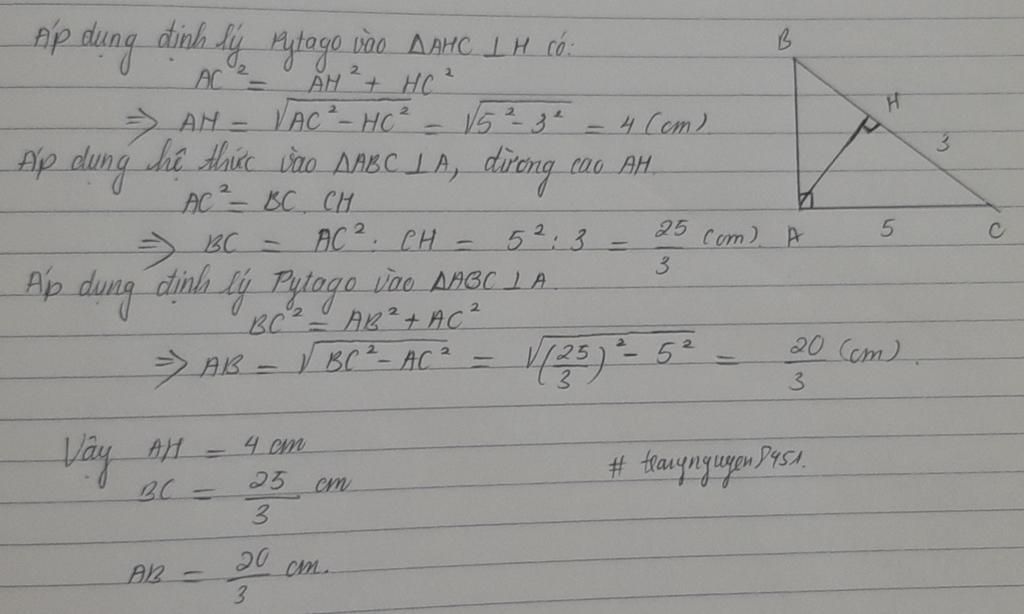 Áp dụng định lý Pytago vào ΔAHC ⊥ H có:
AC² = AH² + HC²
⇒ AH = √(AC² − HC²) = √(5² − 3²) = 4 (cm)
Áp dụng hệ thức vào ΔABC ⊥ A, đường cao AH.
AC² = BC . CH
⇒ BC = AC² : CH = 5² : 3 = 25/3 (cm).
Áp dụng định lý Pytago vào ΔABC ⊥ A.
BC² = AB² + AC²
⇒ AB = √(BC² − AC²) = √((25/3)² − 5²) = 20/3 (cm).
Vậy AH = 4 cm
BC = 25/3 cm
AB = 20/3 cm.
B
H
3
A
5
C